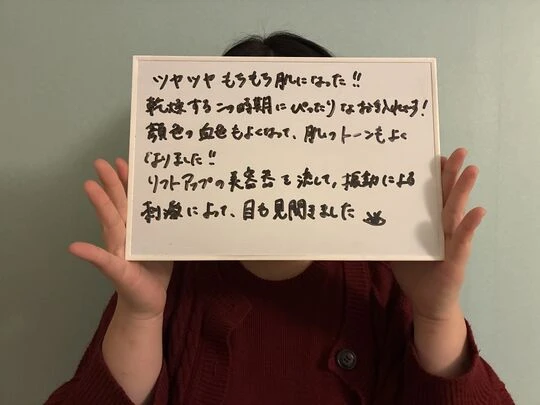 ツヤツヤもちもち肌になった!!
乾燥するこの時期にぴったりなお手入れです!
顔色の血色もよくなって、肌のトーンもよく
なりました!!
リフトアップの美容器を流して、振動による
刺激によって、目も見開きました